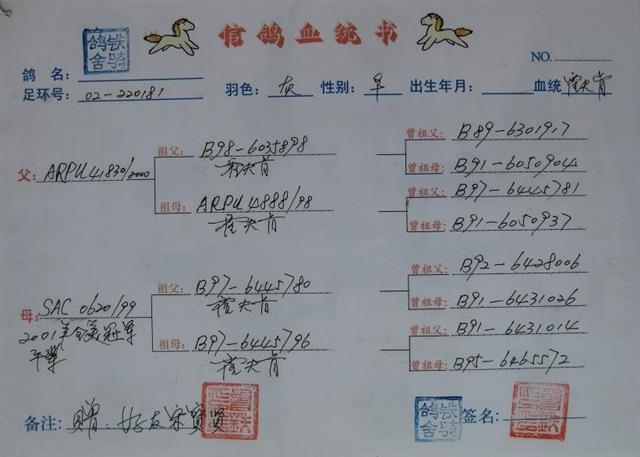 信鸽血统书
铁骑
鸽舍
NO.
鸽名：
足环号：02-220181 羽色：灰 性别：早 出生年月： 血统 霍夫肯
祖父：B98-6035898
霍夫肯
父：ARPU 41830/2000
祖母：ARPU 4888/98
霍夫肯
曾祖父：B89-6301917
曾祖母：B91-6050904
曾祖父：B97-6445781
曾祖母：B91-6050937
祖父：B97-6445780
霍夫肯
母：SAC 0620/99
2001年
冠军
祖母：B97-6445796
霍夫肯
曾祖父：B92-6428006
曾祖母：B91-6431026
曾祖父：B91-6431014
曾祖母：B95-6465572
备注：赠：好友宋宝贤
铁骑
鸽舍
签名：